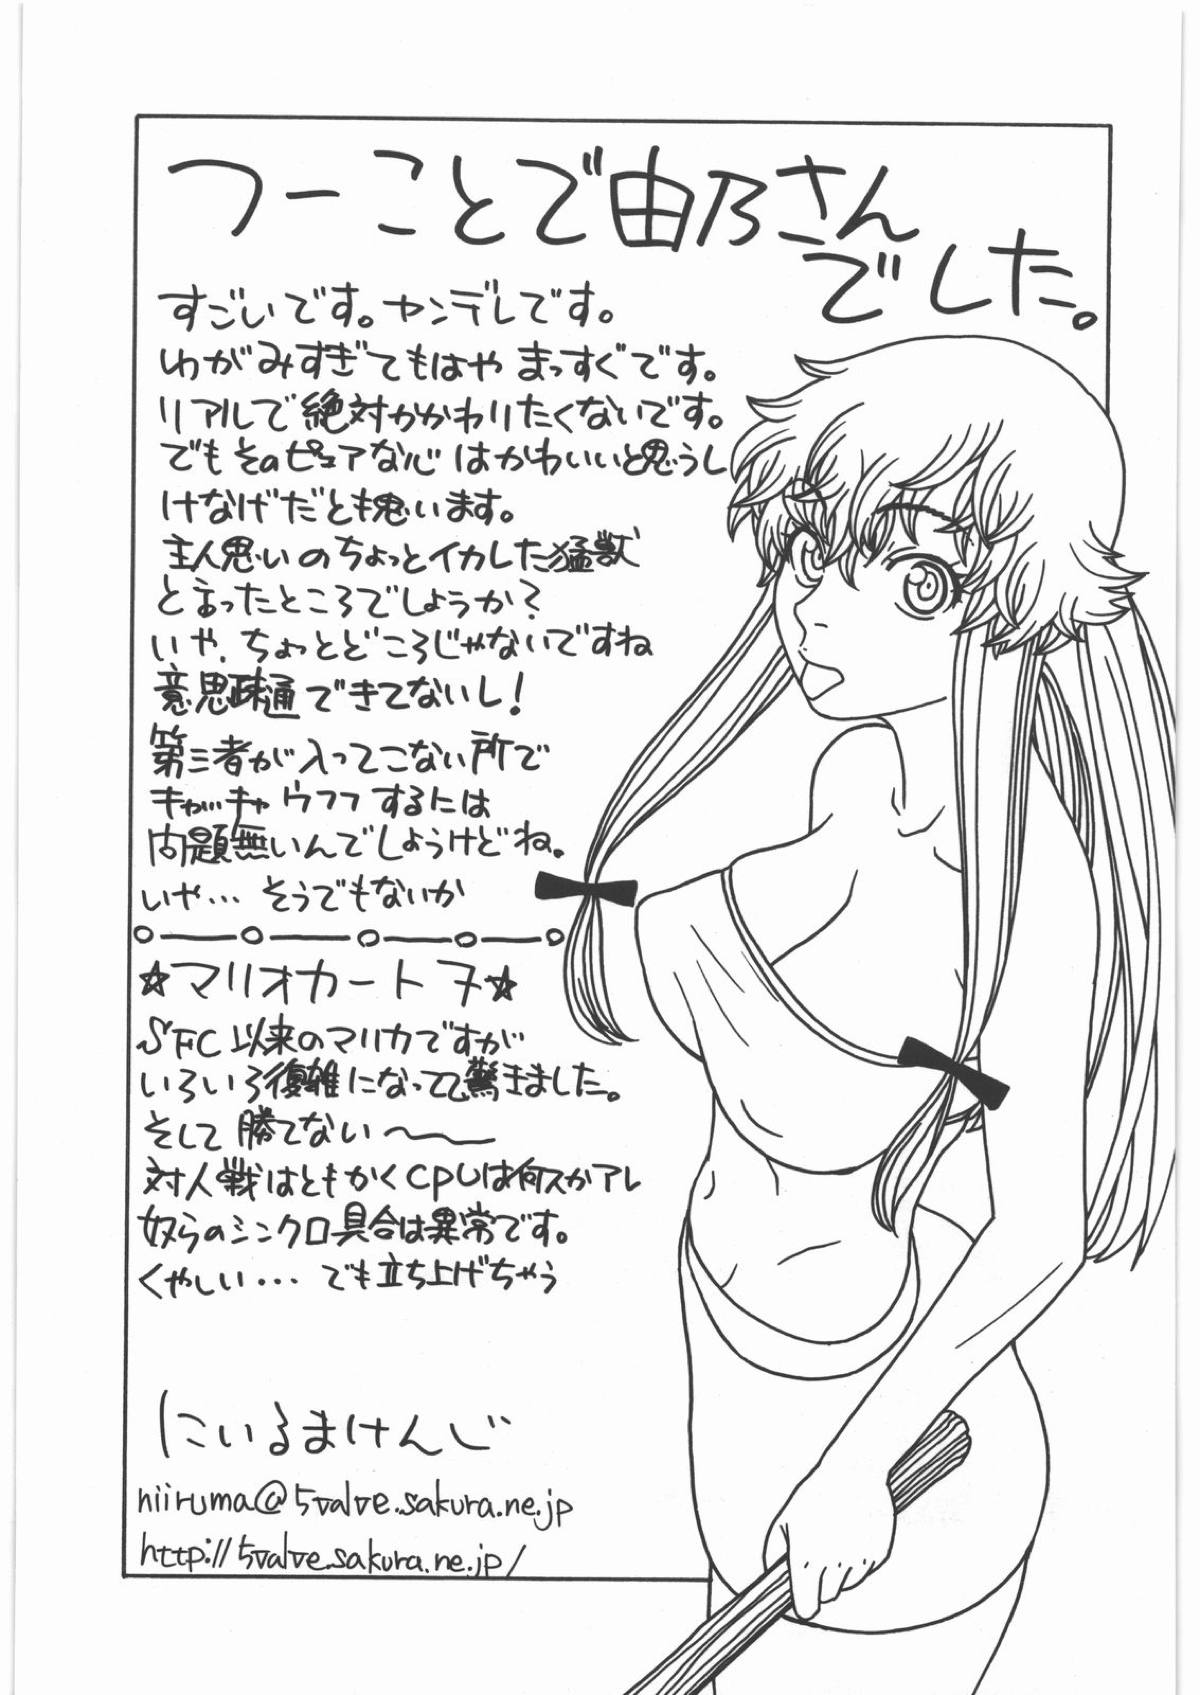 つーことで由乃さん
でした。
すごいです。ヤンデレです。
ゆがみすぎてもはやまっすぐです。
リアルで絶対かかわりたくないです。
でもそのピュアな心はかわいいと思うし
けなげだとも思います。
主人思いのちょっとイカした猛獣
と言ったところでしょうか?
いや、ちょっとどころじゃないですね
意思疎通できてないし!
第三者が入ってこない所で
キャッキャウフフするには
問題無いんでしょうけどね。
いや…そうでもないか
☆マリオカート7☆
SFC以来のマリカですが
いろいろ復雑になってて驚きました。
そして勝てない〜
対人戦はともかくCPUは何スかアレ
奴らのシンクロ具合は異常です。
くやしい…でも立ち上げちゃう
にいるまけんじ
niiruma@5valve.sakura.ne.jp
http://5valve.sakura.ne.jp/